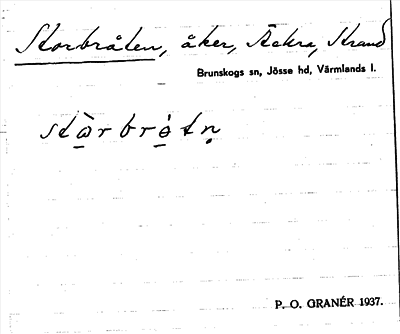 Storbråten, åker, Äckra, Strand
Brunskogs sn, Jösse hd, Värmlands l.
stὼ̱rbrώ̱tn̥
P. O. GRANÉR 1937.